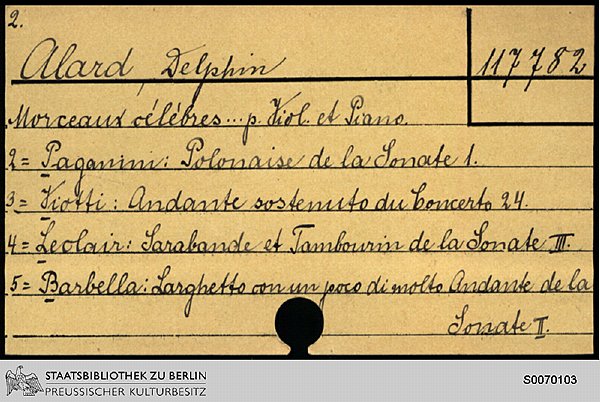 2.
Alard, Delphin
117782
Morceaux célèbres... p. Viol. et Piano.
2 = Paganini: Polonaise de la Sonate 1.
3 = Viotti: Andante sostenuto du Concerto 24.
4 = Leclair: Sarabande et Tambourin de la Sonate III.
5 = Barbella: Larghetto con un poco di molto Andante de la
Sonate II.
STAATSBIBLIOTHEK ZU BERLIN
PREUSSISCHER KULTURBESITZ
S0070103